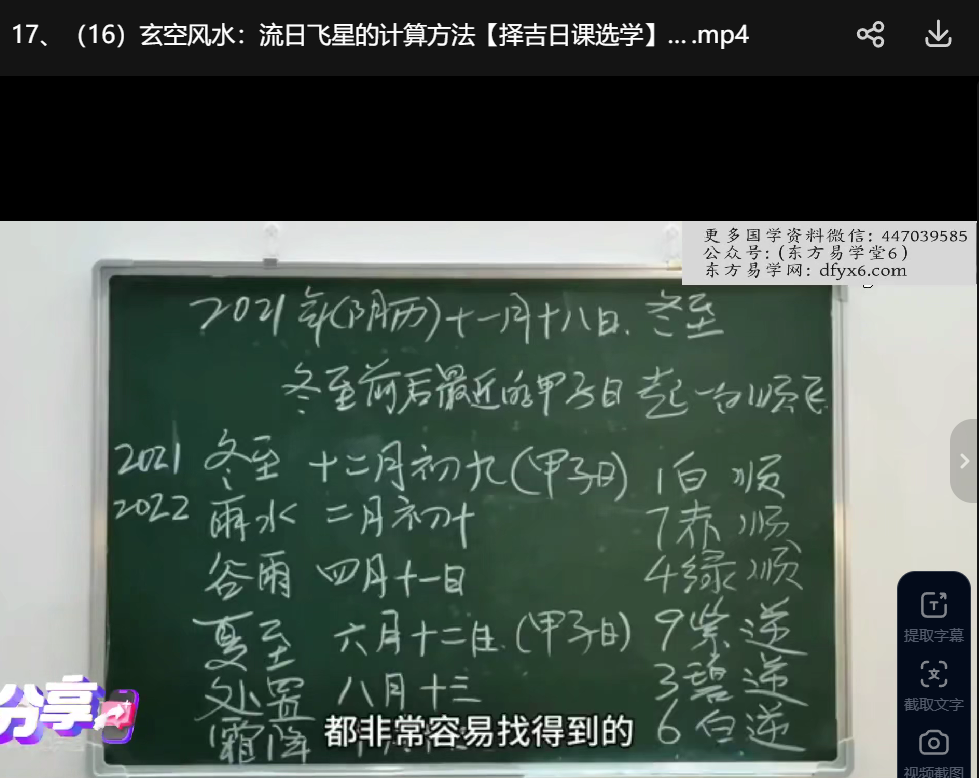 17、（16）玄空风水：流日飞星的计算方法【择吉日课选学】... .mp4
更多国学资料微信：447039585
公众号：(东方易学堂6)
东方易学网：dfyx6.com
2021年(阴历)十一月十八日. 冬至
冬至前后最近的甲子日起一白顺飞
2021 冬至 十二月初九(甲子日) 1白 顺
2022 雨水 二月初十 7赤 顺
谷雨 四月十一日 4绿 顺
夏至 六月十二日.(甲子日) 9紫 逆
处暑 八月十三 3碧 逆
霜降 6白 逆
都非常容易找得到的
分享
提取字幕
截取文字
视频截图